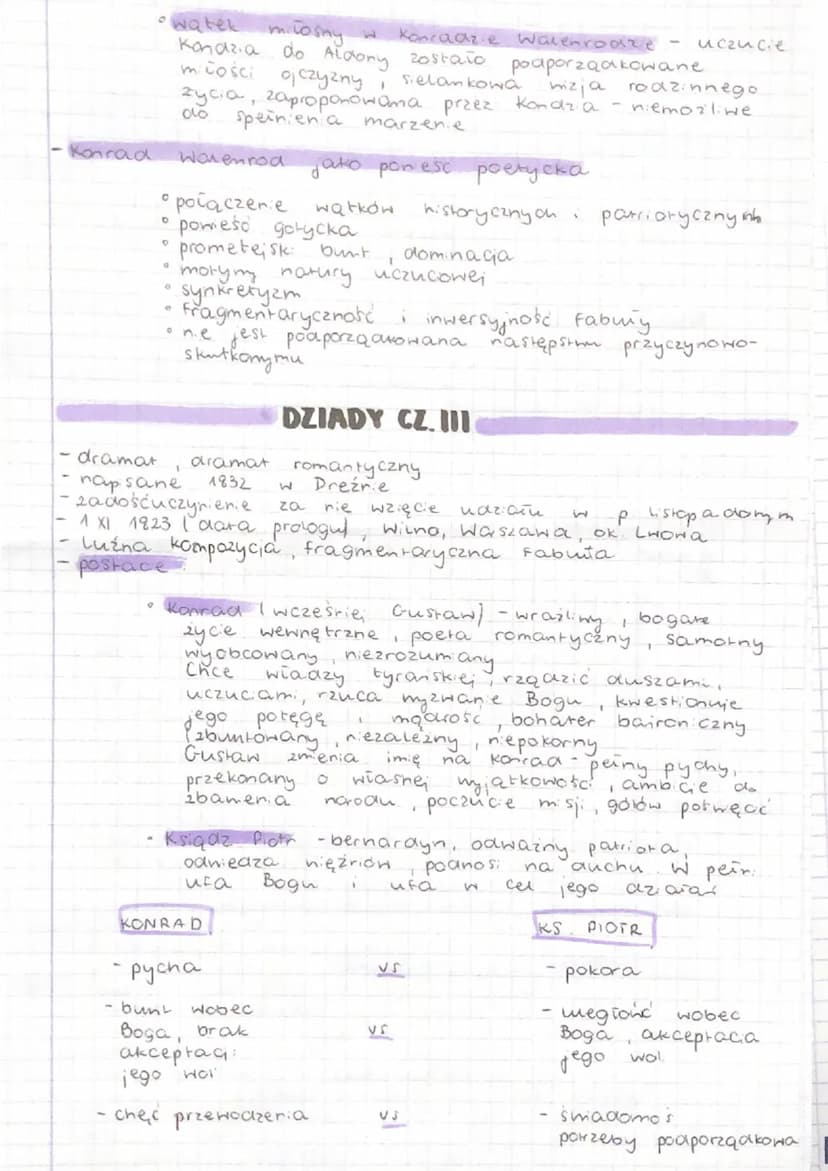 ° wątek miłosny w Konradzie Wallenrodzie - uczucie
Konrada do Aldony zostało podporządkowane
miłości ojczyzny, sielankowa wizja rodzinnego
życia, zaproponowana przez Konrada - niemożliwe
do spełnienia marzenie
- Konrad Wallenrod jako powieść poetycka
° połączenie wątków historycznych i patriotycznych
° powieść gotycka
° prometejski bunt, dominacja
° motywy natury uczuciowej
° synkretyzm
° fragmentaryczność i inwersyjność fabuły
° nie jest podporządkowana następstwu przyczynowo-
skutkowymu
DZIADY CZ. III
- dramat, dramat romantyczny
- napisane 1832 w Dreźnie
- zadośćuczynienie za nie wzięcie udziału w p. listopadowym
- 1 XI 1823 (data prologu), Wilno, Warszawa, ok. Lwowa
- luźna kompozycja, fragmentaryczna fabuła
- postacie:
° Konrad (wcześniej Gustaw) - wrażliwy, bogate
życie wewnętrzne, poeta romantyczny, samotny
wyobcowany, niezrozumiany
Chce władzy tyrańskiej, rządzić duszami,
uczuciami, rzuca wyzwanie Bogu, kwestionuje
jego potęgę i mądrość, bohater baironiczny
(zbuntowany, niezależny, niepokorny
Gustaw zmienia imię na Konrad - pełny pychy,
przekonany o własnej wyjątkowości, ambicje do
zbawienia narodu, poczucie misji, gotów poświęcić
• Ksiądz Piotr - bernardyn, odważny patriota,
odwiedza więźniów, podnosi na duchu. W pełni
ufa Bogu i ufa w cel jego działań
KONRAD KS. PIOTR
- pycha vs - pokora
- bunt wobec vs - uległość wobec
Boga, brak Boga, akceptacja
akceptacji jego woli
jego woli
- chęć przewodzenia vs - świadomoś
potrzeby podporządkowa